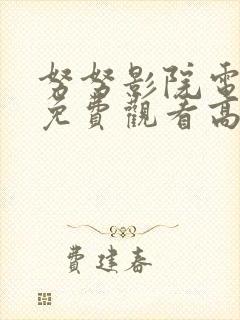 努努影院電
免費觀看高
費建春